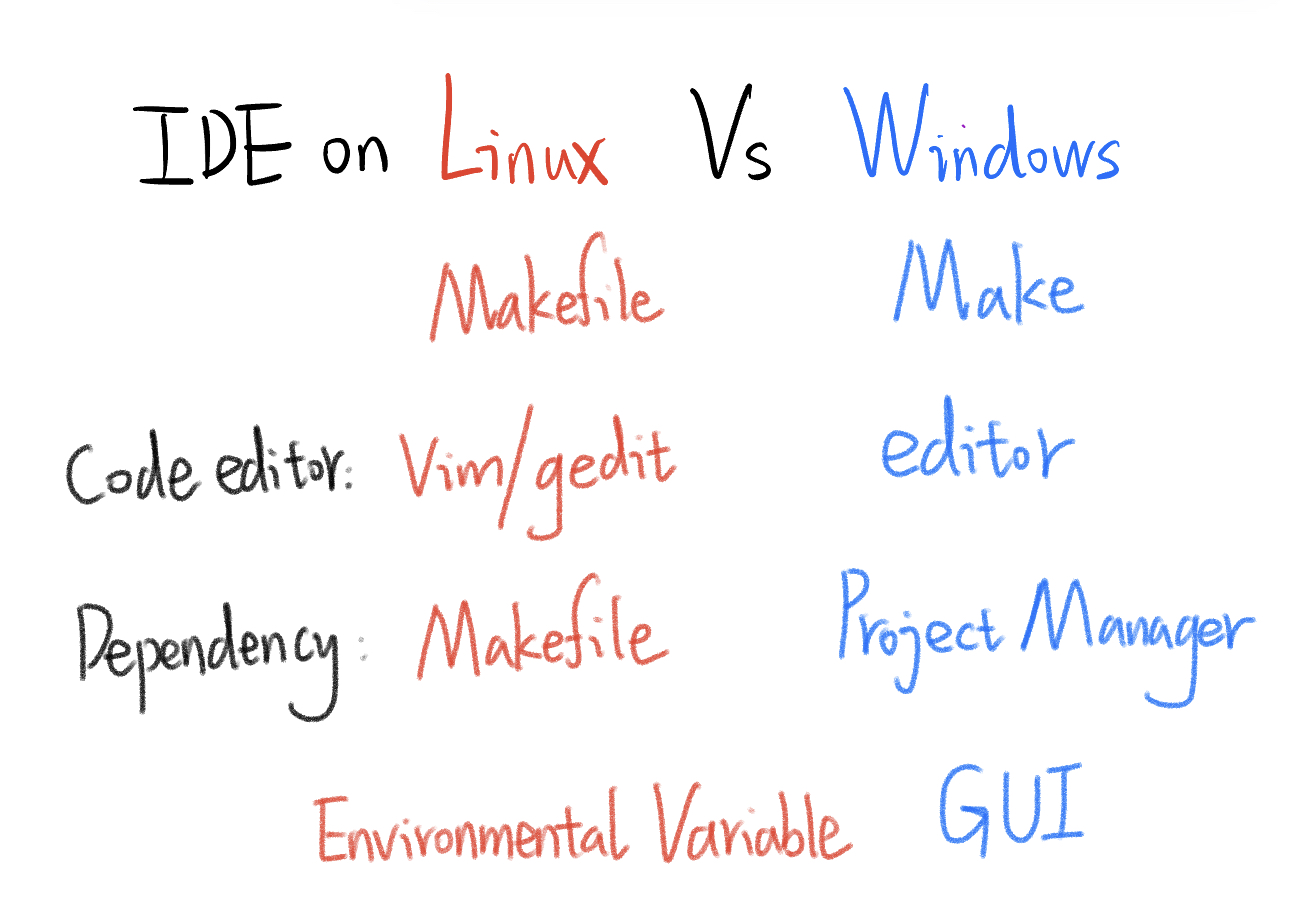 IDE on Linux Vs Windows
Makefile Make
Code editor: Vim/gedit editor
Dependency: Makefile Project Manager
Environmental Variable GUI